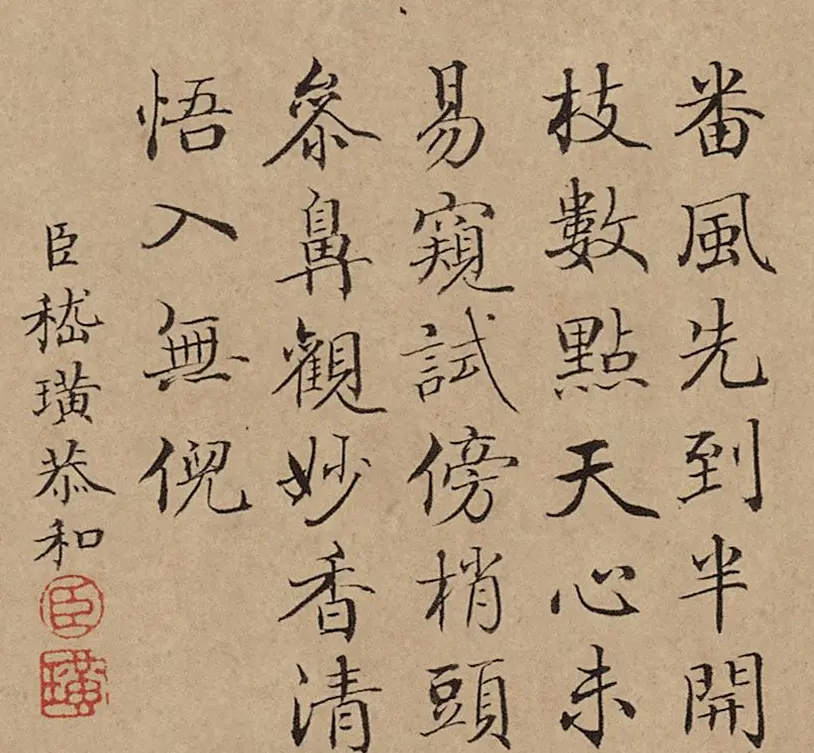 番風先到半開
枝數點天心未
易窺試傍梢頭
叅鼻觀妙香清
悟入無倪
臣嵇璜恭和
臣
璜